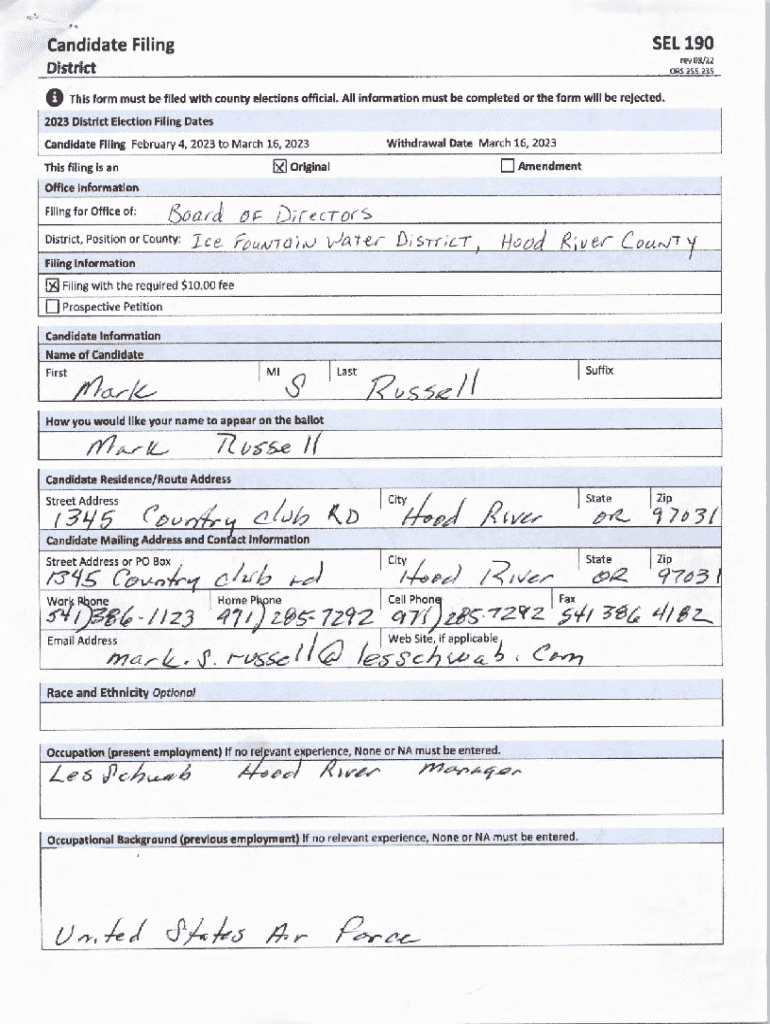 Candidate Filing
SEL 190
District
rev 03/22
ORS 255.235
This form must be filed with county elections official. All information must be completed or the form will be rejected.
2023 District Election Filing Dates
Candidate Filing February 4, 2023 to March 16, 2023 Withdrawal Date March 16, 2023
This filing is an ☒ Original ☐ Amendment
Office Information
Filing for Office of: Board of Directors
District, Position or County: Ice Fountain Water District, Hood River County
Filing Information
☒ Filing with the required $10.00 fee
☐ Prospective Petition
Candidate Information
Name of Candidate
First MI Last Suffix
Mark S Russell
How you would like your name to appear on the ballot
Mark Russell
Candidate Residence/Route Address
Street Address City State Zip
1345 Country club RD Hood River OR 97031
Candidate Mailing Address and Contact Information
Street Address or PO Box City State Zip
1345 Country club rd Hood River OR 97031
Work Phone Home Phone Cell Phone Fax
541)386-1123 971)285-7292 971)285-7292 541 386 4182
Email Address Web Site, if applicable
mark.s.russell@lesschwab.com
Race and Ethnicity Optional
Occupation (present employment) If no relevant experience, None or NA must be entered.
Les Schwab Hood River Manager
Occupational Background (previous employment) If no relevant experience, None or NA must be entered.
United States Air Force